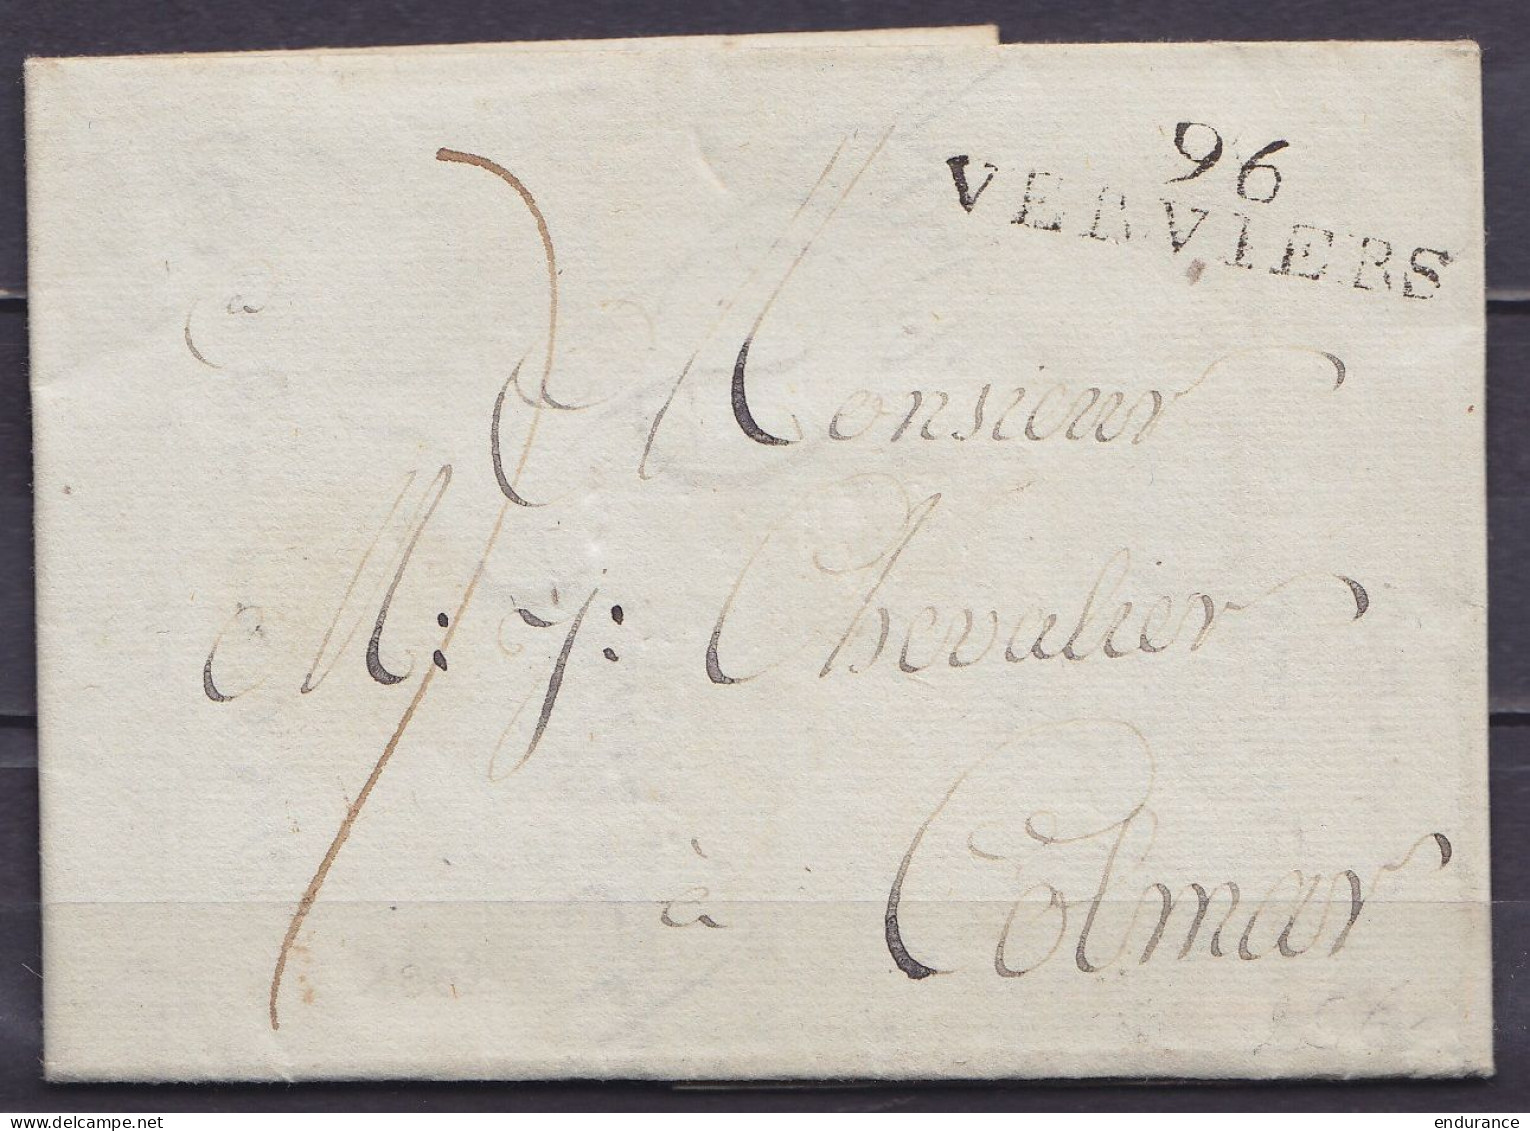 96
VERVIERS
a
Monsieur
M: J: Chevalier
à
Colmar
endurance